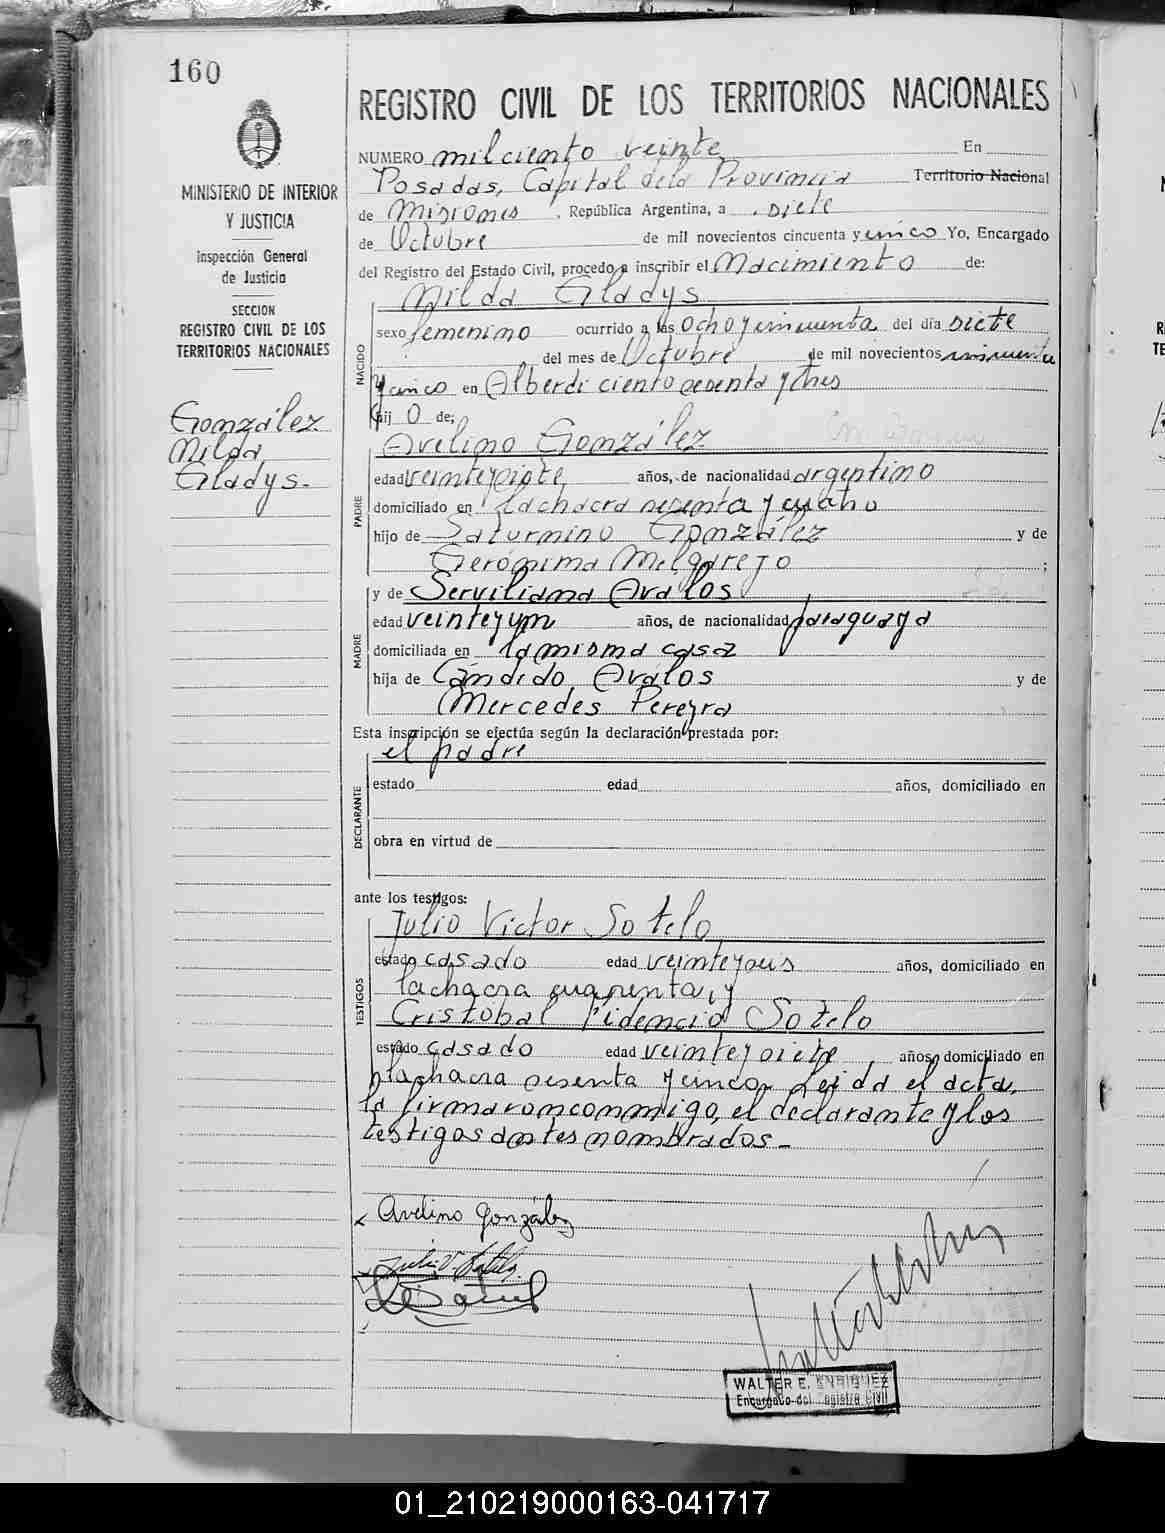 160
REGISTRO CIVIL DE LOS TERRITORIOS NACIONALES
MINISTERIO DE INTERIOR
Y JUSTICIA
Inspección General
de Justicia
SECCION
REGISTRO CIVIL DE LOS
TERRITORIOS NACIONALES
González
Nilda
Gladys.-
NUMERO mil ciento veinte En
Posadas, Capital de la Provincia Territorio Nacional
de Misiones, República Argentina, a siete
de Octubre de mil novecientos cincuenta y cinco Yo, Encargado
del Registro del Estado Civil, procedo a inscribir el Nacimiento de:
Nilda Gladys
NACIDO
sexo femenino ocurrido a las ocho y cincuenta del día siete
del mes de Octubre de mil novecientos cincuenta
y cinco en Alberdi ciento sesenta y tres
hij o de;
Avelino González
PADRE
edad veintisiete años, de nacionalidad argentino
domiciliado en la chacra sesenta y cuatro
hijo de Saturnino González y de
Gerónima Melgarejo ;
y de Serviliana Avalos
MADRE
edad veinteyun años, de nacionalidad paraguaya
domiciliada en la misma casa
hija de Cándido Avalos y de
Mercedes Pereyra
Esta inscripción se efectúa según la declaración prestada por:
el padre
DECLARANTE
estado edad años, domiciliado en
obra en virtud de
ante los testigos:
Julio Victor Sotelo
TESTIGOS
estado casado edad años, domiciliado en
la chacra cuarenta, y
Cristóbal Fidencio Sotelo
estado casado edad veinteysiete años, domiciliado en
la chacra sesenta y cinco. Leida el acta,
la firmaron conmigo, el declarante y los
testigos antes nombrados.-
Avelino González
Julio V. Sotelo
WALTER E. ENRIQUEZ
Encargado del Registro Civil
01_210219000163-041717